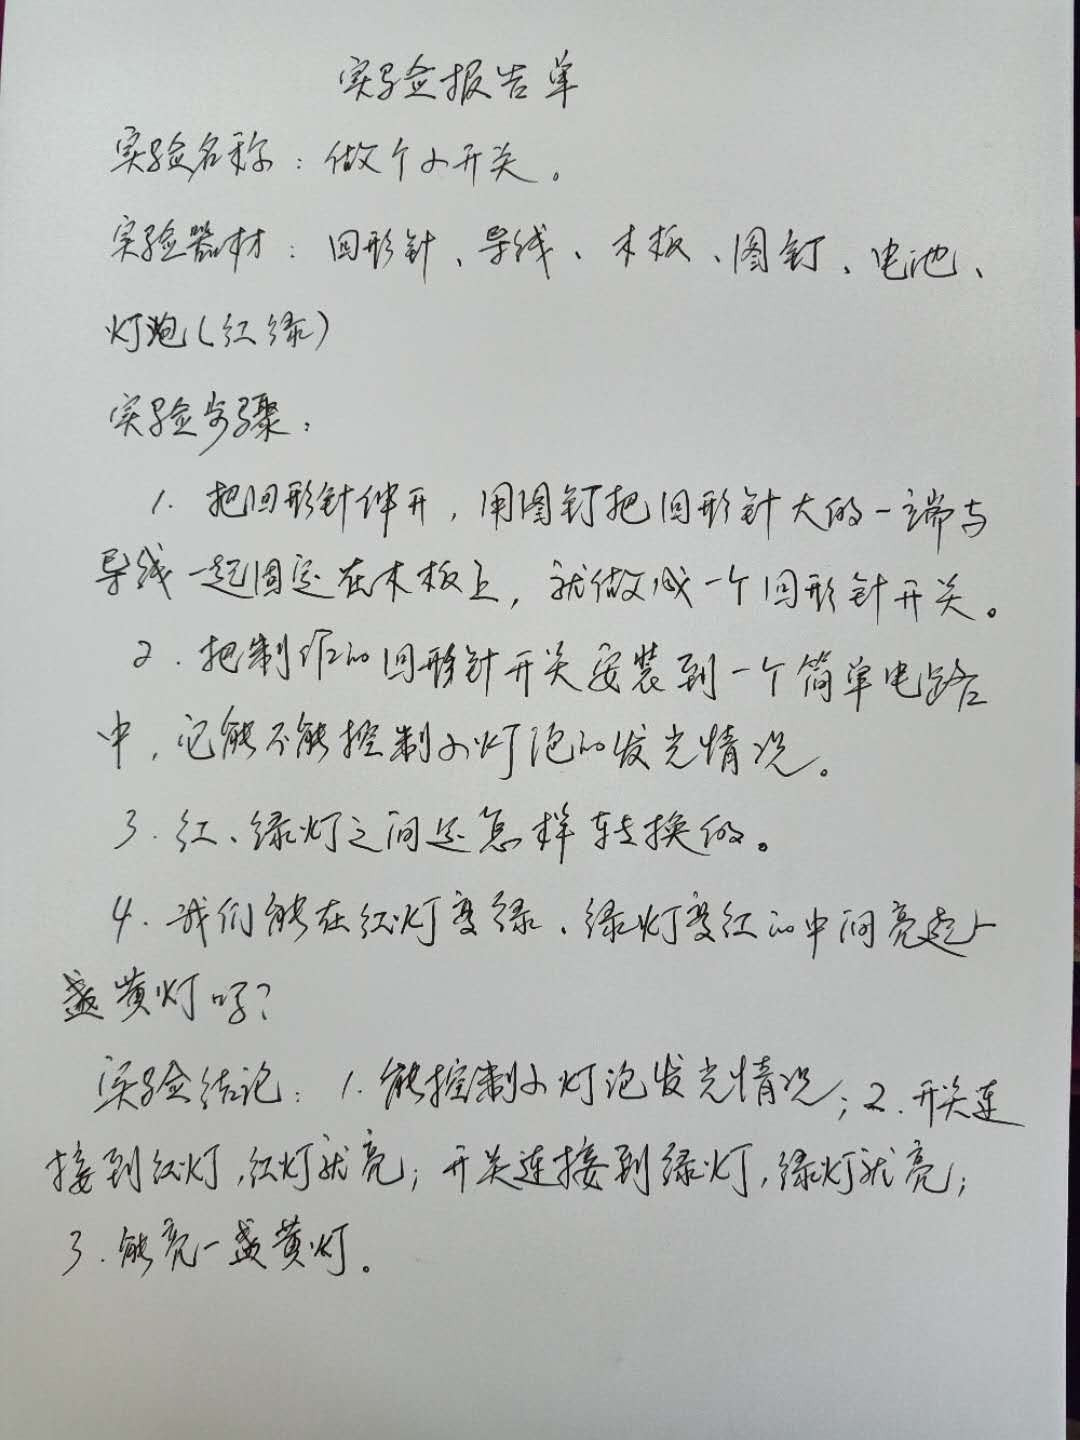 实验报告单
实验名称：做个小开关。
实验器材：回形针、导线、木板、图钉、电池、
灯泡(红绿)
实验步骤：
1. 把回形针伸开，用图钉把回形针大的一端与
导线一起固定在木板上，就做成一个回形针开关。
2. 把制作的回形针开关安装到一个简单电路
中，它能不能控制小灯泡的发光情况。
3. 红、绿灯之间是怎样转换的。
4. 我们能在红灯变绿、绿灯变红的中间亮起一
盏黄灯吗？
实验结论：1. 能控制小灯泡发光情况；2. 开关连
接到红灯，红灯就亮；开关连接到绿灯，绿灯就亮；
3. 能亮一盏黄灯。